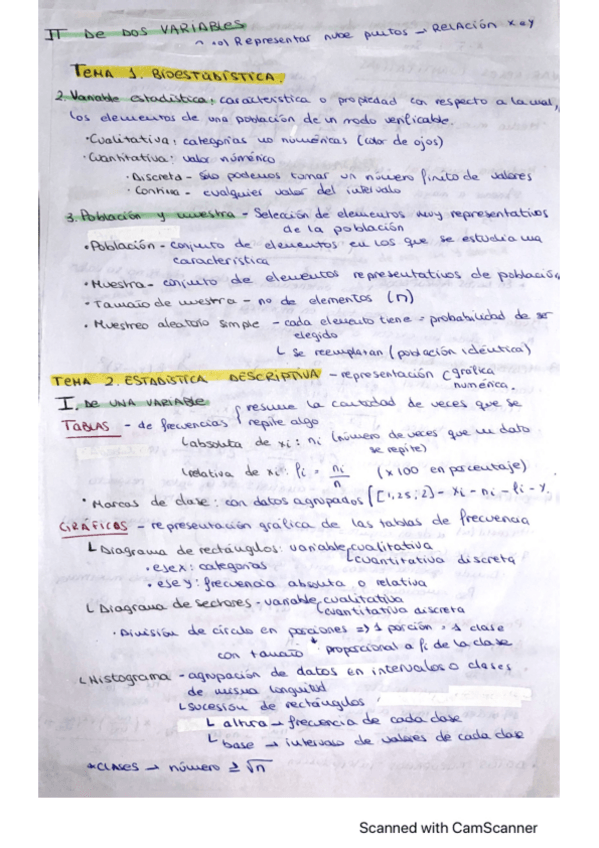 II DE DOS VARIABLES
Representar nube puntos → RELACIÓN x e y
TEMA 1. BIOESTADÍSTICA.
2. Variable estadística: característica o propiedad con respecto a la cual,
los elementos de una población de un modo verificable.
• Cualitativa: categorías no numéricas (color de ojos)
• Cuantitativa: valor numérico
• Discreta - Solo podemos tomar un número finito de valores
• Continua - cualquier valor del intervalo
3. Población y muestra - Selección de elementos muy representativos
de la población
• Población - conjunto de elementos en los que se estudia una
característica
• Muestra - conjunto de elementos representativos de población
• Tamaño de muestra - no de elementos (n)
• Muestreo aleatorio simple - cada elemento tiene = probabilidad de ser
elegido
└ Se reemplazan (población idéntica)
TEMA 2. ESTADÍSTICA DESCRIPTIVA - representación { gráfica
numérica.
I. DE UNA VARIABLE
TABLAS - de frecuencias { resume la cantidad de veces que se
repite algo
└ absoluta de xi: ni (número de veces que un dato
se repite)
└ relativa de xi: fi = ni/n (x100 en porcentaje)
• Marcas de clase: con datos agrupados ([1,25; 2] - xi - ni - fi - y
GRÁFICOS - representación gráfica de las tablas de frecuencia
└ Diagrama de rectángulos: variable cualitativa
└ cuantitativa discreta
• eje x: categorías
• eje y: frecuencia absoluta o relativa
└ Diagrama de sectores - variable cualitativa
└ cuantitativa discreta
• División de círculo en porciones => 1 porción = 1 clase
con tamaño proporcional a fi de la clase
└ Histograma - agrupación de datos en intervalos o clases
de misma longitud
└ Sucesión de rectángulos
└ altura → frecuencia de cada clase
└ base → intervalo de valores de cada clase
*CLASES → número ≥ √n
Scanned with CamScanner